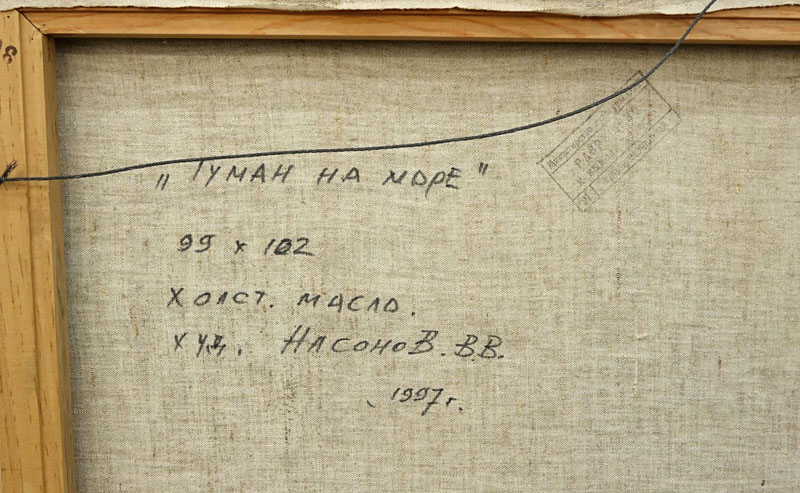 "Туман на море"
99 х 102
Холст. масло.
худ. Насонов. В.В.
1997г.